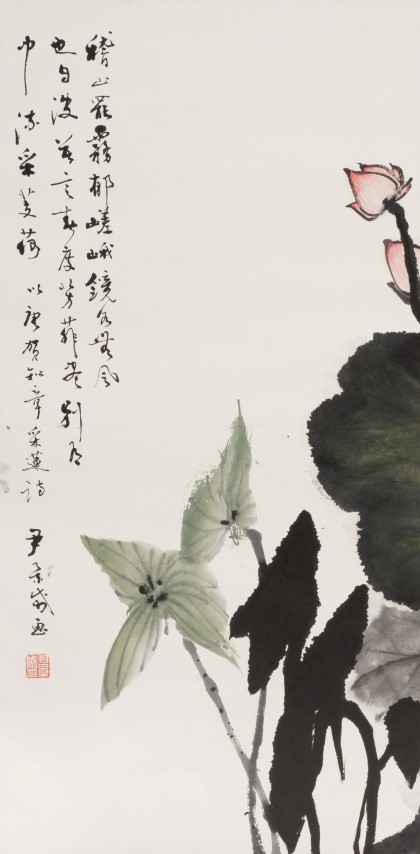 稽山罷霧郁嵯峨鏡水無風
也自波莫言春度芳菲盡別有
中流采芰荷 以唐賀知章采蓮詩 尹